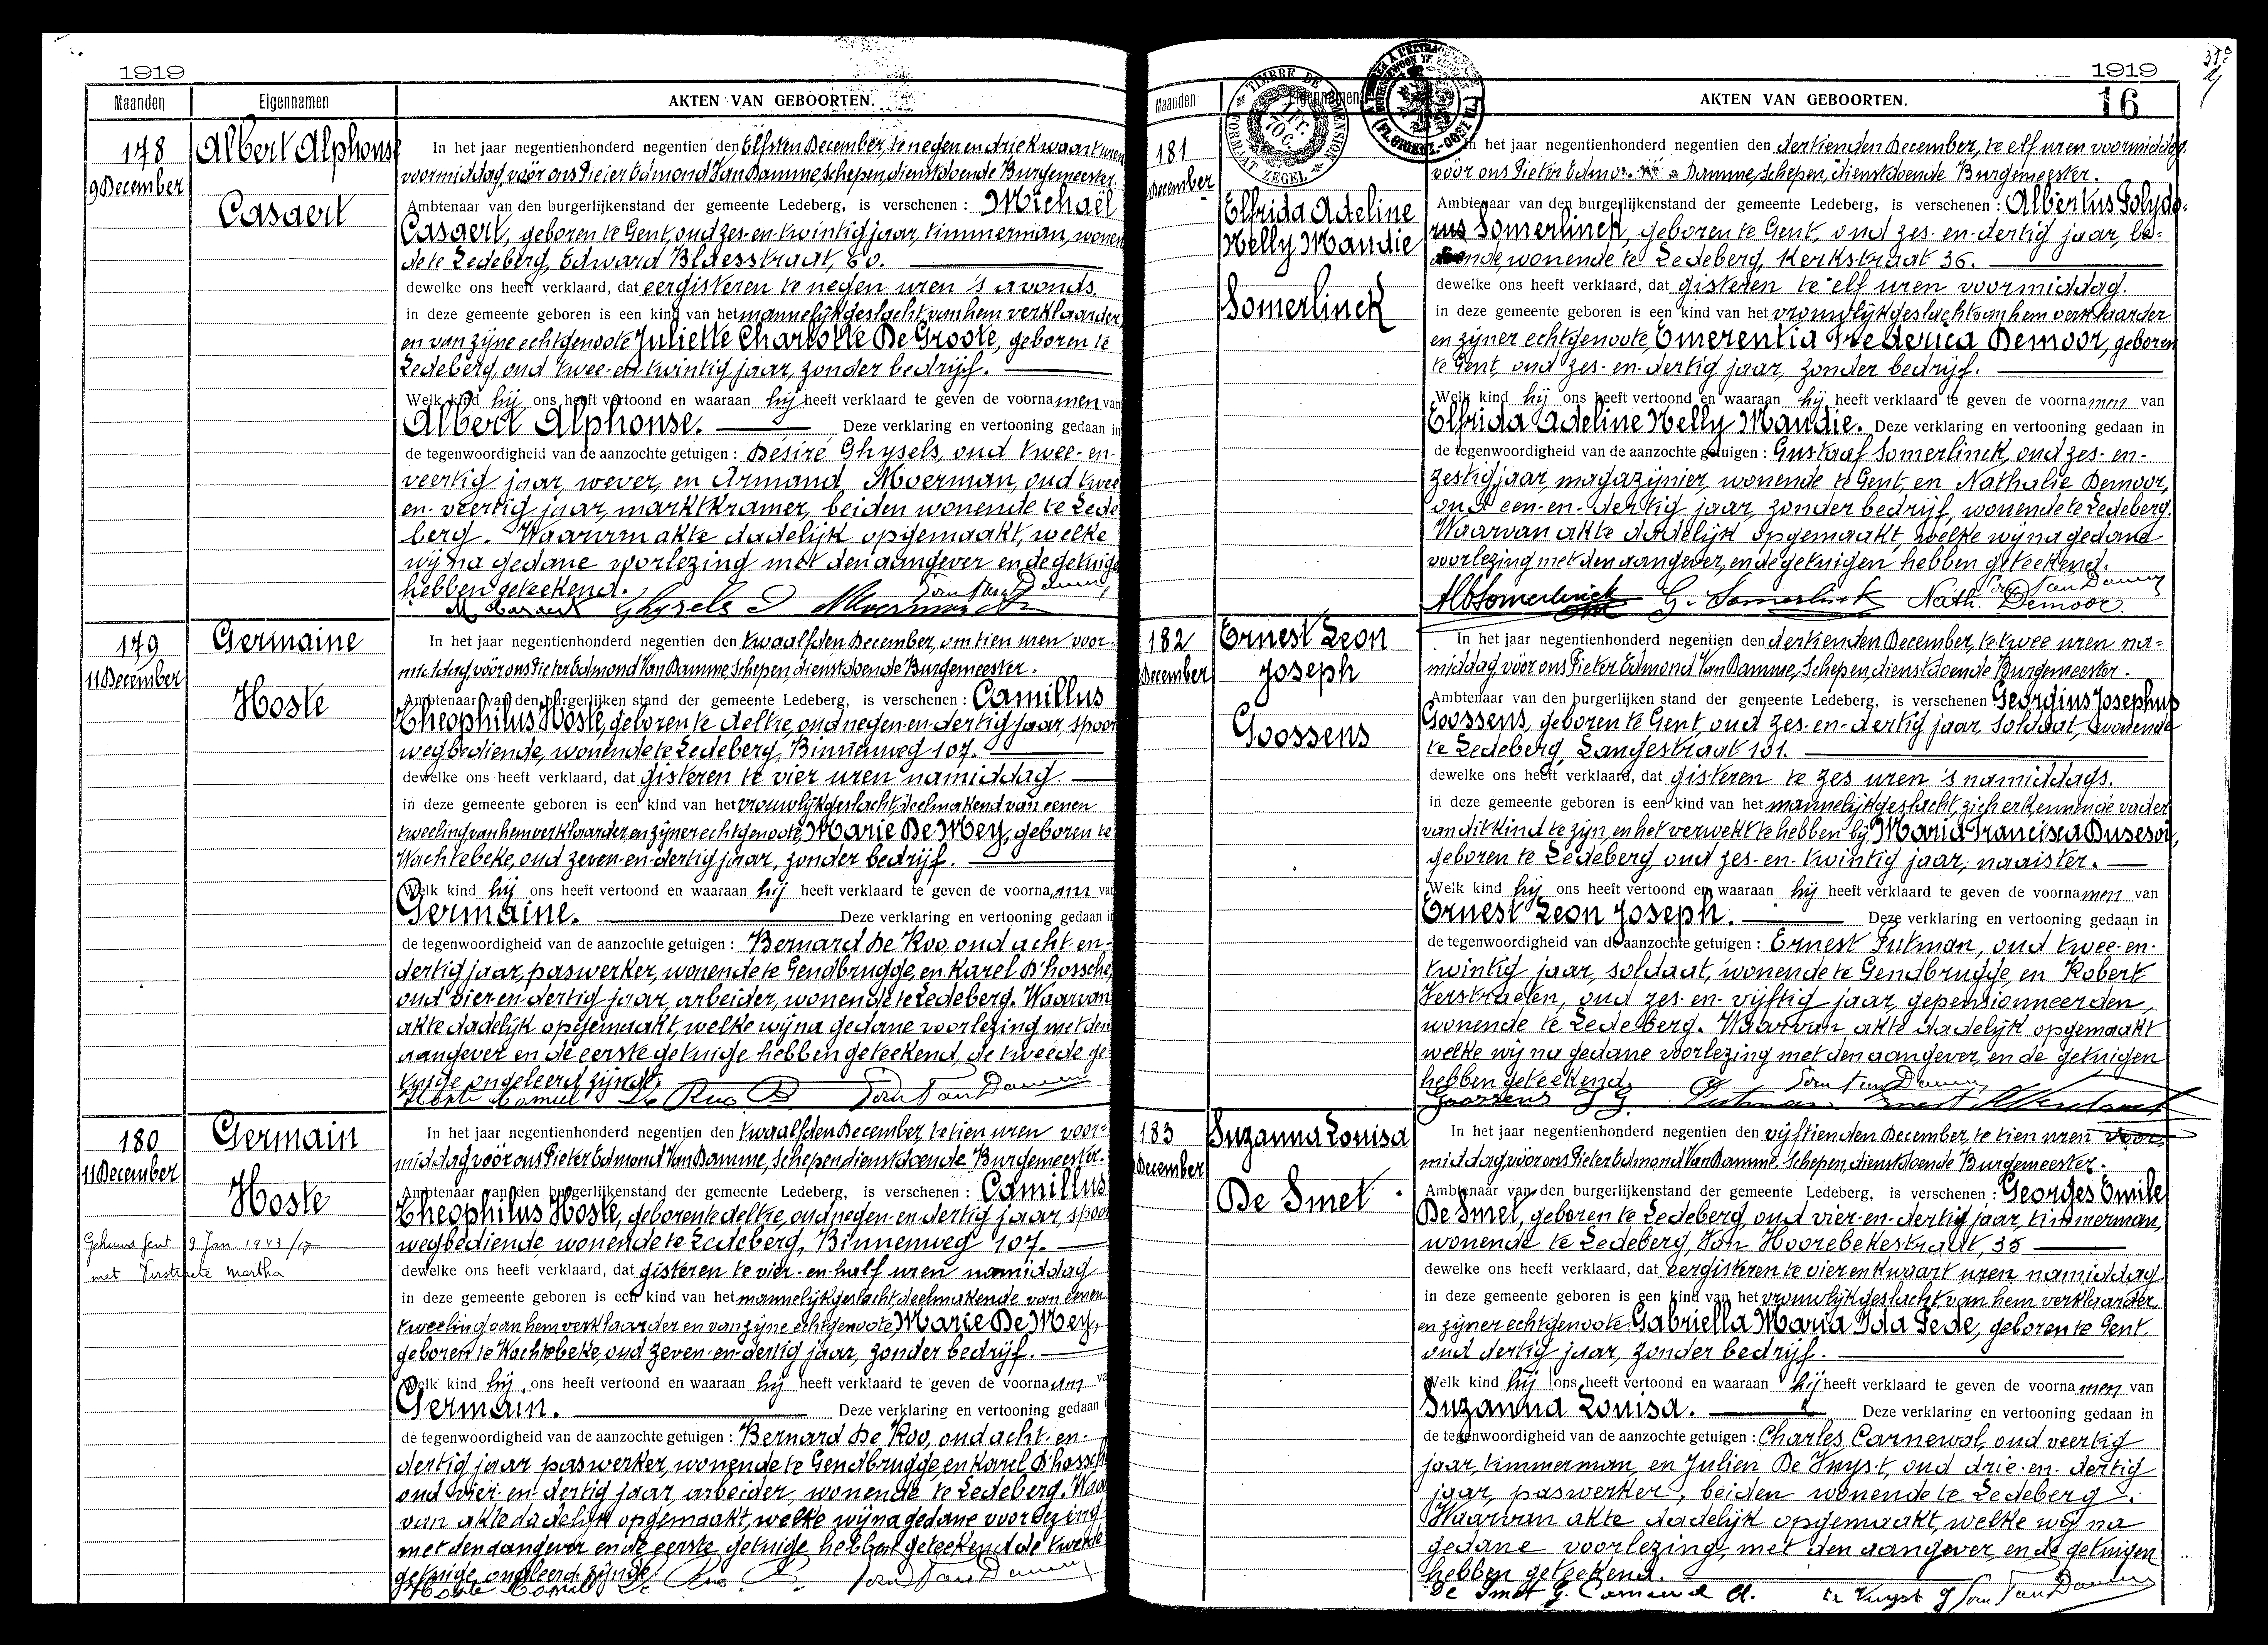 1919
Maanden Eigennamen AKTEN VAN GEBOORTEN.
178
9 December
Albert Alphonse
Casaert
In het jaar negentienhonderd negentien den Elfsten December, te negen en driekwaart uren
voormiddag, vóór ons Pieter Edmond Van Damme, Schepen, dienstdoende Burgemeester.
Ambtenaar van den burgerlijkenstand der gemeente Ledeberg, is verschenen : Michaël
Casaert, geboren te Gent, oud zes-en-twintig jaar, timmerman, wonen
de te Ledeberg, Edward Blaesstraat, 60.
dewelke ons heeft verklaard, dat eergisteren te negen uren 's avonds
in deze gemeente geboren is een kind van het mannelijk geslacht van hem verklaarder,
en van zijne echtgenoote Juliette Charlotte De Groote, geboren te
Ledeberg, oud twee-en-twintig jaar, zonder bedrijf.
Welk kind hij ons heeft vertoond en waaraan hij heeft verklaard te geven de voornamen van
Albert Alphonse. Deze verklaring en vertooning gedaan in
de tegenwoordigheid van de aanzochte getuigen : Désiré Ghysels, oud twee-en-
veertig jaar, wever, en Armand Moerman, oud twee
en-veertig jaar, marktkramer, beiden wonende te Lede
berg. Waarvan akte dadelijk opgemaakt, welke
wij na gedane voorlezing met den aangever en de getuige
hebben geteekend.
M. Casaert Ghysels D Moerman Van Damme
179
11 December
Germaine
Hoste
In het jaar negentienhonderd negentien den twaalfden December, om tien uren voor-
middag, vóór ons Pieter Edmond Van Damme, Schepen, dienstdoende Burgemeester.
Ambtenaar van den burgerlijken stand der gemeente Ledeberg, is verschenen : Camillus
Theophilus Hoste, geboren te Deltre, oud negen-en-dertig jaar, spoor
wegbediende, wonende te Ledeberg, Binnenweg 107.
dewelke ons heeft verklaard, dat gisteren te vier uren namiddag.
in deze gemeente geboren is een kind van het vrouwlijk geslacht, deelmakend van eenen
tweeling van hem verklaarder, en zijner echtgenoote, Marie De Mey, geboren te
Wachtebeke, oud zeven-en-dertig jaar, zonder bedrijf.
Welk kind hij ons heeft vertoond en waaraan hij heeft verklaard te geven de voornaam van
Germaine. Deze verklaring en vertooning gedaan in
de tegenwoordigheid van de aanzochte getuigen : Bernard De Roo, oud acht-en-
dertig jaar, paswerker, wonende te Gendbrugge, en Karel D'hossche,
oud vier-en-dertig jaar, arbeider, wonende te Ledeberg. Waarvan
akte dadelijk opgemaakt, welke wij na gedane voorlezing met den
aangever en de eerste getuige hebben geteekend, de tweede ge-
tuige ongeleerd zijnde.
Hoste Camiel De Roo B Van Damme
180
11 December
Germain
Hoste
Gehuwd Gent 9 Jan. 1943
met Verstraete Martha
In het jaar negentienhonderd negentien den twaalfden December, te tien uren voor-
middag, vóór ons Pieter Edmond Van Damme, Schepen dienstdoende Burgemeester.
Ambtenaar van den burgerlijkenstand der gemeente Ledeberg, is verschenen : Camillus
Theophilus Hoste, geboren te Deltre, oud negen-en-dertig jaar, spoor
wegbediende, wonende te Ledeberg, Binnenweg 107.
dewelke ons heeft verklaard, dat gisteren te vier-en-half uren namiddag
in deze gemeente geboren is een kind van het mannelijk geslacht, deelmakende van eenen
tweeling van hem verklaarder en van zijne echtgenoote, Marie De Mey,
geboren te Wachtebeke, oud zeven-en-dertig jaar, zonder bedrijf.
Welk kind hij ons heeft vertoond en waaraan hij heeft verklaard te geven de voornaam va
Germain. Deze verklaring en vertooning gedaan
de tegenwoordigheid van de aanzochte getuigen : Bernard De Roo, oud acht-en-
dertig jaar paswerker, wonende te Gendbrugge en Karel D'hossch
oud vier-en-dertig jaar, arbeider wonende te Ledeberg. Waar
van akte dadelijk opgemaakt, welke wij na gedane voorlezing
met den aangever en de eerste getuige hebben geteekend de tweede
getuige ongeleerd zijnde.
Hoste Camiel De Roo B. Van Damme
1919
16
Maanden Eigennamen AKTEN VAN GEBOORTEN.
TIMBRE DE DIMENSION
1 Fr. 70 c.
ZEGEL
181
December
Elfrida Adeline
Nelly Maudie
Somerlinck
In het jaar negentienhonderd negentien den dertienden December, te elf uren voormiddag.
vóór ons Pieter Edmond Damme, Schepen, dienstdoende Burgemeester.
Ambtenaar van den burgerlijkenstand der gemeente Ledeberg, is verschenen : Albertus Polydo-
rus Somerlinck, geboren te Gent, oud zes-en-dertig jaar, be-
diende, wonende te Ledeberg, Kerkstraat 36.
dewelke ons heeft verklaard, dat gisteren te elf uren voormiddag.
in deze gemeente geboren is een kind van het vrouwlijk geslacht van hem verklaarder
en zijner echtgenoote, Emerentia Frederica Demoor, geboren
te Gent, oud zes-en-dertig jaar, zonder bedrijf.
Welk kind hij ons heeft vertoond en waaraan hij heeft verklaard te geven de voornamen van
Elfrida Adeline Nelly Maudie. Deze verklaring en vertooning gedaan in
de tegenwoordigheid van de aanzochte getuigen : Gustaaf Somerlinck, oud zes-en-
zestig jaar, magazijnier, wonende te Gent, en Nathalie Demoor,
oud een-en-dertig jaar, zonder bedrijf, wonende te Ledeberg.
Waarvan akte dadelijk opgemaakt, welke wij na gedane
voorlezing met den aangever, en de getuigen hebben geteekend.
Alb Somerlinck G. Somerlinck Nath. Demoor. Van Damme
182
December
Ernest Leon
Joseph
Goossens
In het jaar negentienhonderd negentien den dertienden December, te twee uren na-
middag, vóór ons Pieter Edmond Van Damme, Schepen, dienstdoende Burgemeester.
Ambtenaar van den burgerlijken stand der gemeente Ledeberg, is verschenen Georgius Josephus
Goossens, geboren te Gent, oud zes-en-dertig jaar, soldaat, wonende
te Ledeberg, Langestraat 191.
dewelke ons heeft verklaard, dat gisteren te zes uren 's namiddags.
in deze gemeente geboren is een kind van het mannelijk geslacht, zich erkennende vader
van dit kind te zijn, en het verwekt te hebben bij Maria Francisca Dusesoi,
geboren te Ledeberg, oud zes-en-twintig jaar, naaister.
Welk kind hij ons heeft vertoond en waaraan hij heeft verklaard te geven de voornamen van
Ernest Leon Joseph. Deze verklaring en vertooning gedaan in
de tegenwoordigheid van de aanzochte getuigen : Ernest Putman, oud twee-en-
twintig jaar, soldaat, wonende te Gendbrugge, en Robert
Verstraeten, oud zes-en-vijftig jaar, gepensionneerden,
wonende te Ledeberg. Waarvan akte dadelijk opgemaakt
welke wij na gedane voorlezing met den aangever, en de getuigen
hebben geteekend.
Goossens G. Putman Ernest Van Damme
183
December
Suzanna Louisa
De Smet
In het jaar negentienhonderd negentien den vijftienden December, te tien uren voor-
middag, vóór ons Pieter Edmond Van Damme, Schepen, dienstdoende Burgemeester.
Ambtenaar van den burgerlijkenstand der gemeente Ledeberg, is verschenen : Georges Emile
De Smet, geboren te Ledeberg, oud vier-en-dertig jaar, timmerman,
wonende te Ledeberg, Van Hoorebekestraat, 35
dewelke ons heeft verklaard, dat eergisteren te vier en kwaart uren namiddag.
in deze gemeente geboren is een kind van het vrouwlijk geslacht, van hem verklaarder,
en zijner echtgenoote Gabriella Maria Ida Pede, geboren te Gent
oud dertig jaar, zonder bedrijf.
Welk kind hij ons heeft vertoond en waaraan hij heeft verklaard te geven de voornamen van
Suzanna Louisa. Deze verklaring en vertooning gedaan in
de tegenwoordigheid van de aanzochte getuigen : Charles Carnewal, oud veertig
jaar, timmerman, en Julien De Knyst, oud drie-en-dertig
jaar, paswerker, beiden wonende te Ledeberg.
Waarvan akte dadelijk opgemaakt, welke wij na
gedane voorlezing, met den aangever, en de getuigen
hebben geteekend.
De Smet G. Carnewal Ch. De Knyst J Van Damme